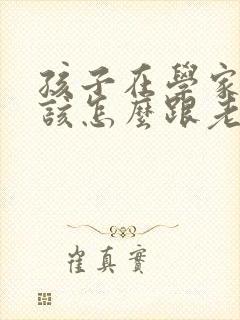 孩子在學家
該怎麼跟老
崔真實